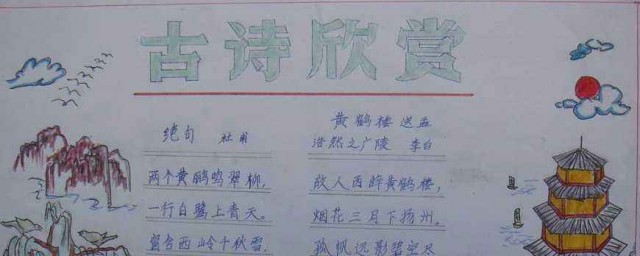 古诗欣赏
绝句 杜甫
两个黄鹂鸣翠柳，
一行白鹭上青天。
窗含西岭千秋雪，
黄鹤楼送孟
浩然之广陵 李白
故人西辞黄鹤楼，
烟花三月下扬州。
孤帆远影碧空尽